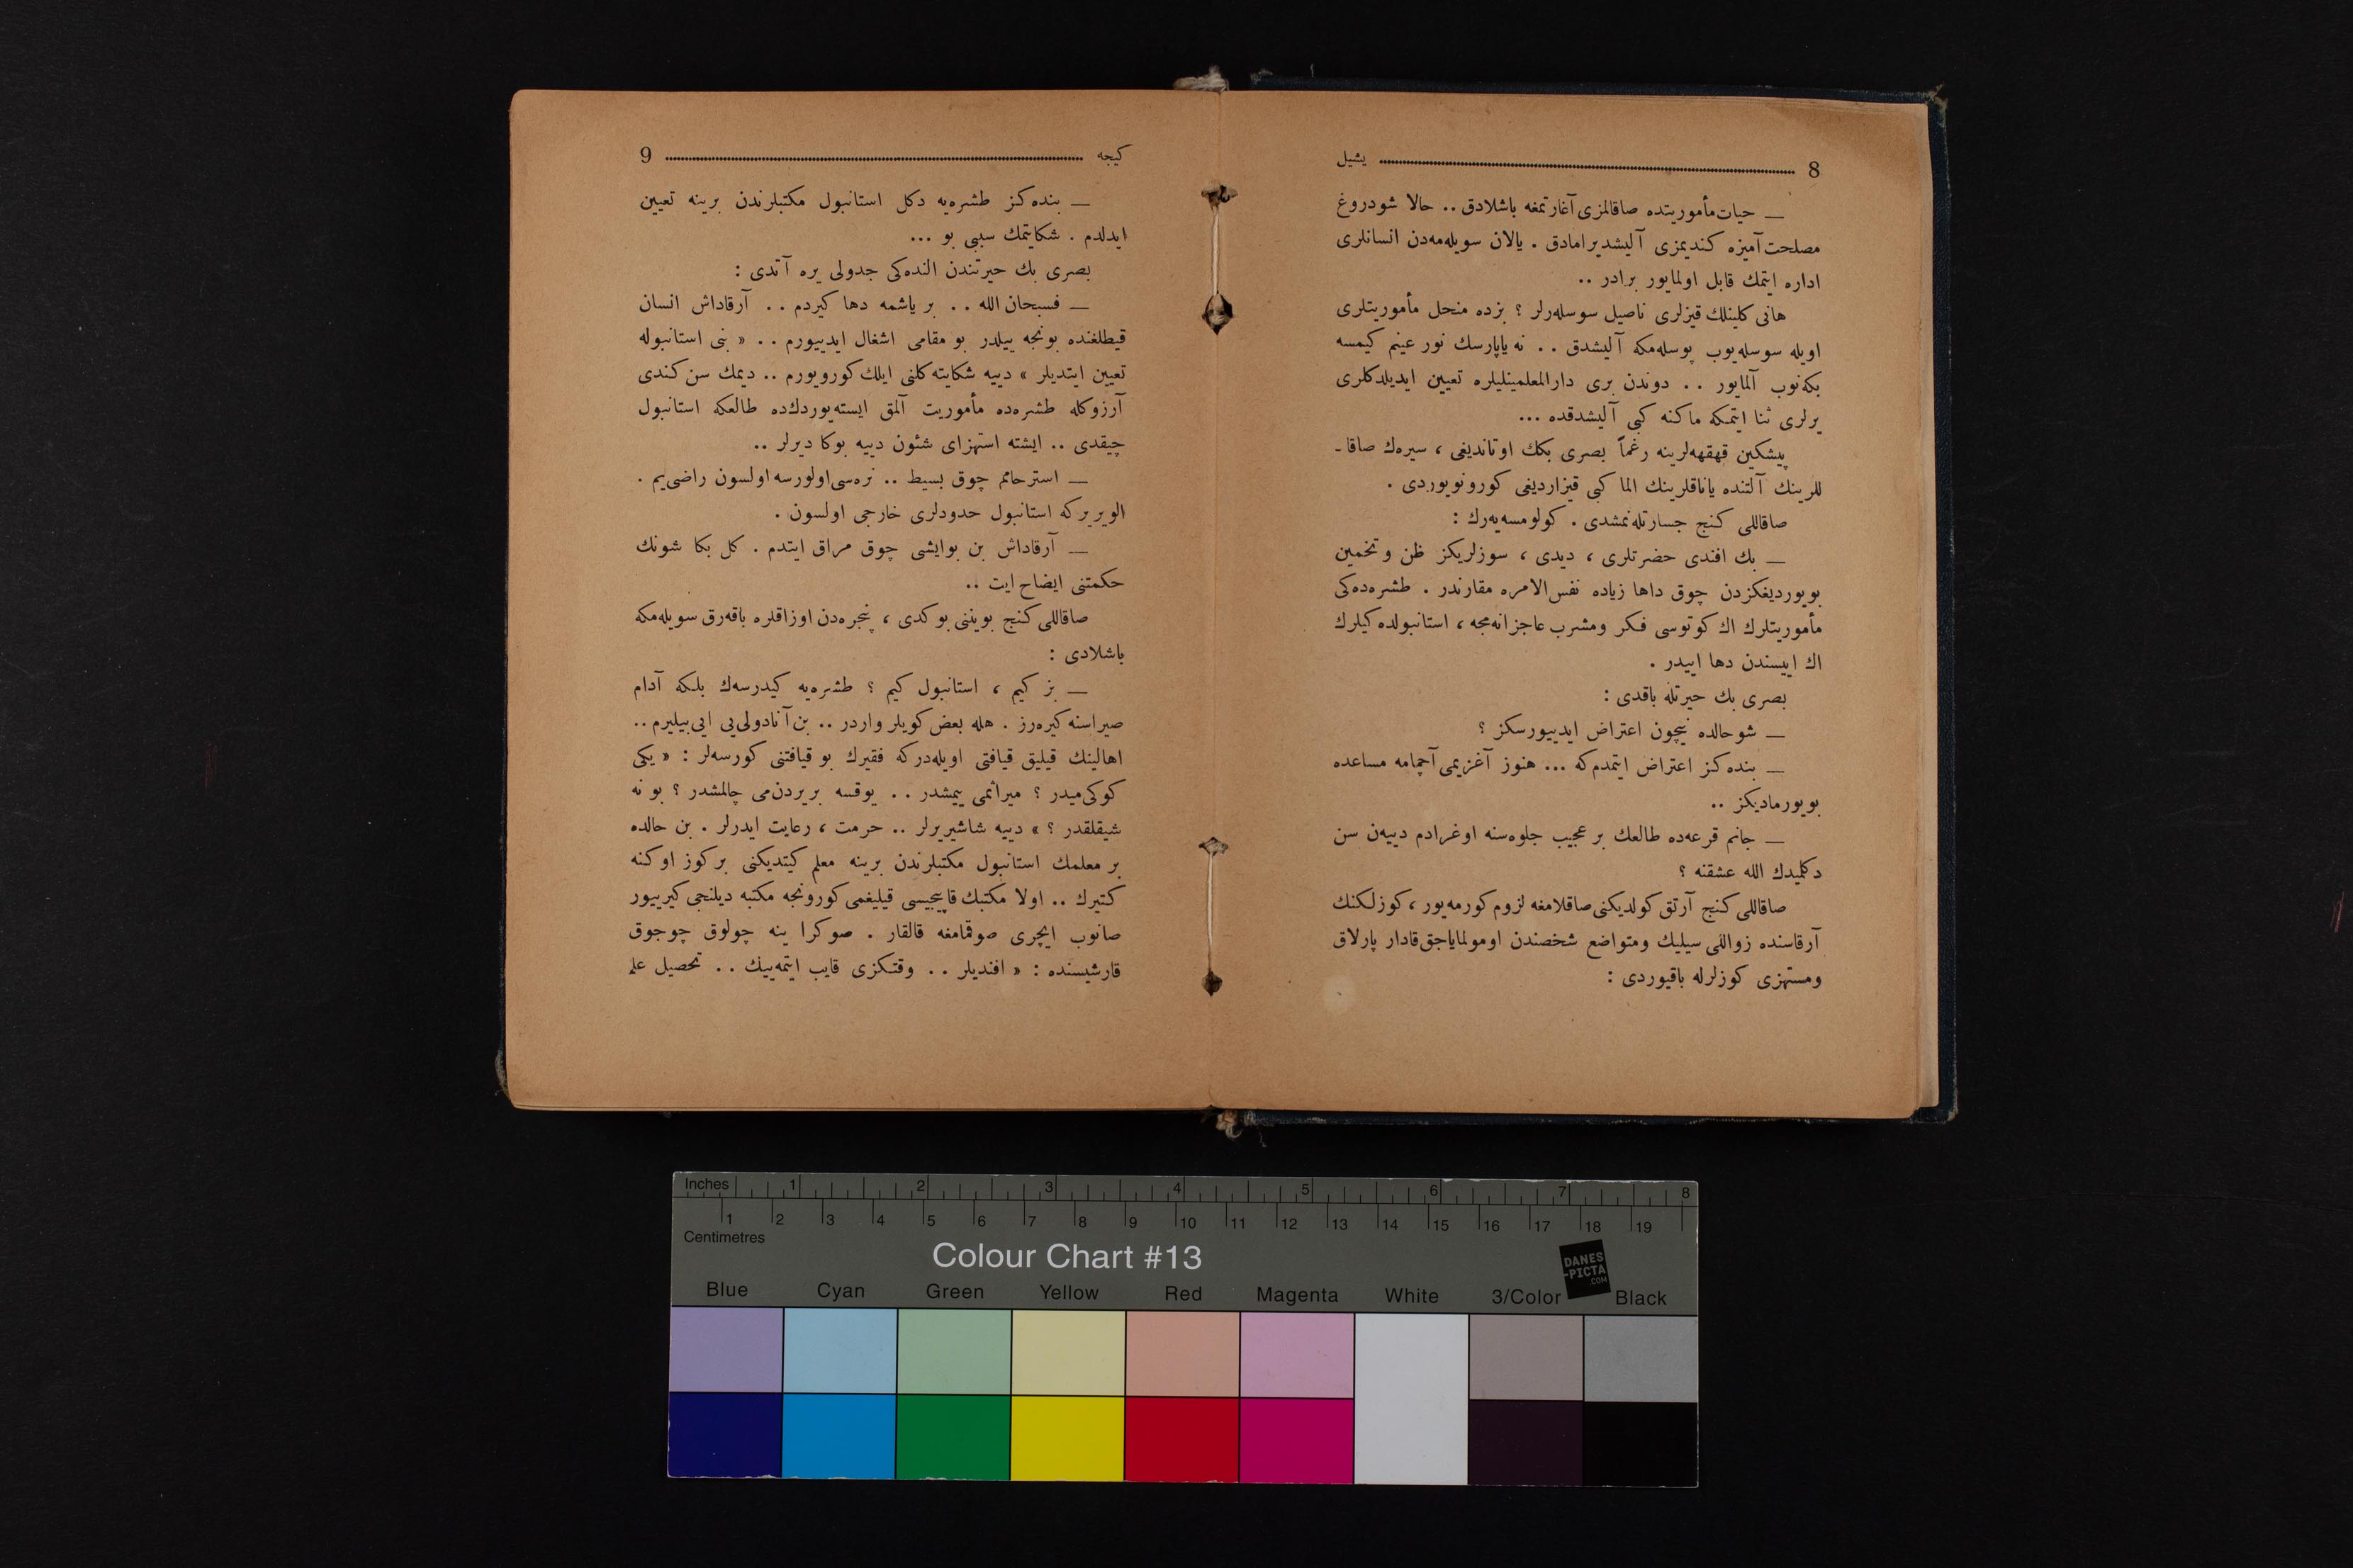 8 يشيل
— حيات مأموريتده صاقالمزى آغارتمغه باشلادق .. حالا شو دروغ
مصلحت آميزه كنديمزى آليشديرامادق . يالان سويله‌مه‌دن انسانلرى
اداره ايتمك قابل اولمايور برادر ..
هانى كلينلك قيزلرى ناصيل سوسله‌رلر ؟ بزده منحل مأموريتلرى
اويله سوسله‌يوب پوسله‌مكه آليشدق .. نه ياپارسك نور عينم كيمسه
بكه‌نوب آلمايور .. دوندن برى دارالمعلمينليلره تعيين ايديلدكلرى
يرلرى ثنا ايتمكه ماكنه كبى آليشدقده ...
پيشكين قهقهه‌لرينه رغماً بصرى بكك اوتانديغى ، سيره‌ك صاقا-
للرينك آلتنده ياناقلرينك الما كبى قيزارديغى كورونويوردى .
صاقاللى كنج جسارتله‌نمشدى . كولومسه‌يه‌رك :
— بك افندى حضرتلرى ، ديدى ، سوزلريكز ظن و تخمين
بويورديغكزدن چوق داها زياده نفس‌الامره مقارندر . طشره‌ده‌كى
مأموريتلرك اك كوتوسى فكر ومشرب عاجزانه‌مجه ، استانبولده‌كيلرك
اك اييسندن دها اييدر .
بصرى بك حيرتله باقدى :
— شو حالده نيچون اعتراض ايدييورسكز ؟
— بنده‌كز اعتراض ايتمدم كه ... هنوز آغزيمى آچمامه مساعده
بويورماديكز ..
— جانم قرعه‌ده طالعك بر عجيب جلوه‌سنه اوغرادم دييه‌ن سن
دكلميدك الله عشقنه ؟
صاقاللى كنج آرتق كولديكنى صاقلامغه لزوم كورمه‌يور ، كوزلكنك
آرقاسنده زواللى سيليك ومتواضع شخصندن اومولماياجق قادار پارلاق
ومستهزى كوزلرله باقيوردى :
كيجه 9
— بنده‌كز طشره‌يه دكل استانبول مكتبلرندن برينه تعيين
ايدلدم . شكايتمك سببى بو ...
بصرى بك حيرتندن النده‌كى جدولى يره آتدى :
— فسبحان الله .. بر ياشمه دها كيردم .. آرقاداش انسان
قيطلغنده بونجه ييلدر بو مقامى اشغال ايدييورم .. « بنى استانبوله
تعيين ايتديلر » دييه شكايته كلنى ايلك كورويورم .. ديمك سن كندى
آرزوكله طشره‌ده مأموريت آلمق ايسته‌يوردك‌ده طالعكه استانبول
چيقدى .. ايشته استهزاى شئون دييه بوكا ديرلر ..
— استرحامم چوق بسيط .. نره‌سى اولورسه اولسون راضى‌يم .
الويرير كه استانبول حدودلرى خارجى اولسون .
— آرقاداش بن بو ايشى چوق مراق ايتدم . كل بكا شونك
حكمتنى ايضاح ايت ..
صاقاللى كنج بوينى بوكدى ، پنجره‌دن اوزاقلره باقه‌رق سويله‌مكه
باشلادى :
— بز كيم ، استانبول كيم ؟ طشره‌يه كيدرسه‌ك بلكه آدام
صيراسنه كيره‌رز . هله بعض كويلر واردر .. بن آنادولى‌يى ايى بيليرم ..
اهالينك قيليق قيافتى اويله‌دركه فقيرك بو قيافتنى كورسه‌لر : « يكى
كوكى‌ميدر ؟ ميراثمى ييمشدر .. يوقسه بر يردن‌مى چالمشدر ؟ بو نه
شيقلقدر ؟ » دييه شاشيريرلر .. حرمت ، رعايت ايدرلر . بن حالده
بر معلمك استانبول مكتبلرندن برينه معلم كيتديكنى بر كوز اوكنه
كتيرك .. اولا مكتبك قاپيجيسى قيليغمى كورونجه مكتبه ديلنجى كيرييور
صانوب ايچرى صوقمامغه قالقار . صوكرا ينه چولوق چوجوق
قارشيسنده : « افنديلر .. وقتكزى قايب ايتمه‌ييك .. تحصيل علم
Inches 1 2 3 4 5 6 7 8
1 2 3 4 5 6 7 8 9 10 11 12 13 14 15 16 17 18 19
Centimetres
Colour Chart #13
DANES
-PICTA
.COM
Blue Cyan Green Yellow Red Magenta White 3/Color Black